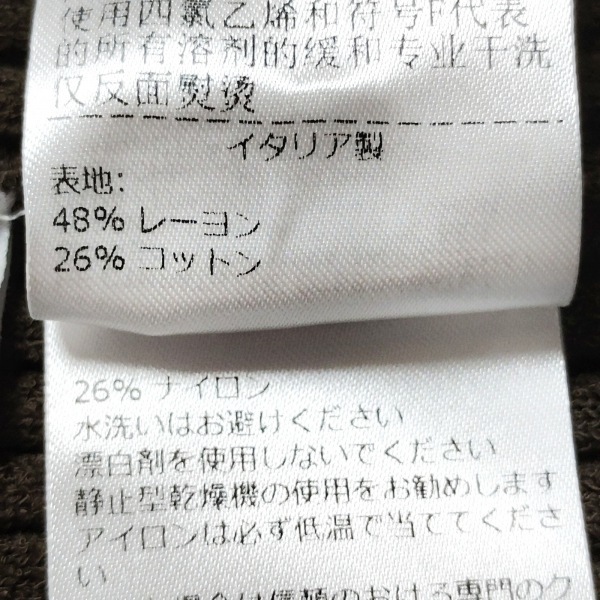 使用四氯乙烯和符号F代表
的所有溶剂的缓和专业干洗
仅反面熨烫
イタリア製
表地:
48% レーヨン
26% コットン
26% ナイロン
水洗いはお避けください
漂白剤を使用しないでください
静止型乾燥機の使用をお勧めします
アイロンは必ず低温で当ててくださ
い
場合は信頼のおける専門のク